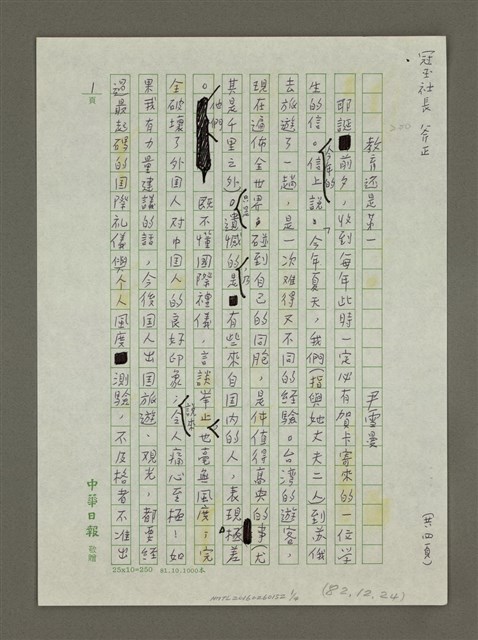 冠玉社長 斧正
(共四頁)
教育还是第一
尹雪曼
耶誕前夕,收到每年此時一定必有賀卡寄來的一位学
生的信。信上說:「今年夏天,我們(指與她丈夫二人)到苏俄
今年的
去旅遊了一趟,是一次难得又不同的經驗。台湾的遊客,
現在遍佈全世界。碰到自己的同胞,是件值得高兴的事(尤
其是千里之外)。遺憾的是,有些來自国内的人,表現極差
但是
。他們既不懂國際禮儀,言談举止也毫無風度;完
全破壞了外国人对中国人的良好印象;令人痛心至極!如
說來
果我有力量建議的話,今後国人出国旅遊、观光,都要經
過最起碼的国際礼儀與个人風度測驗,不及格者不准出
1頁
中華日報 敬贈
25x10=250 81.10.1000本
(82.12.24)